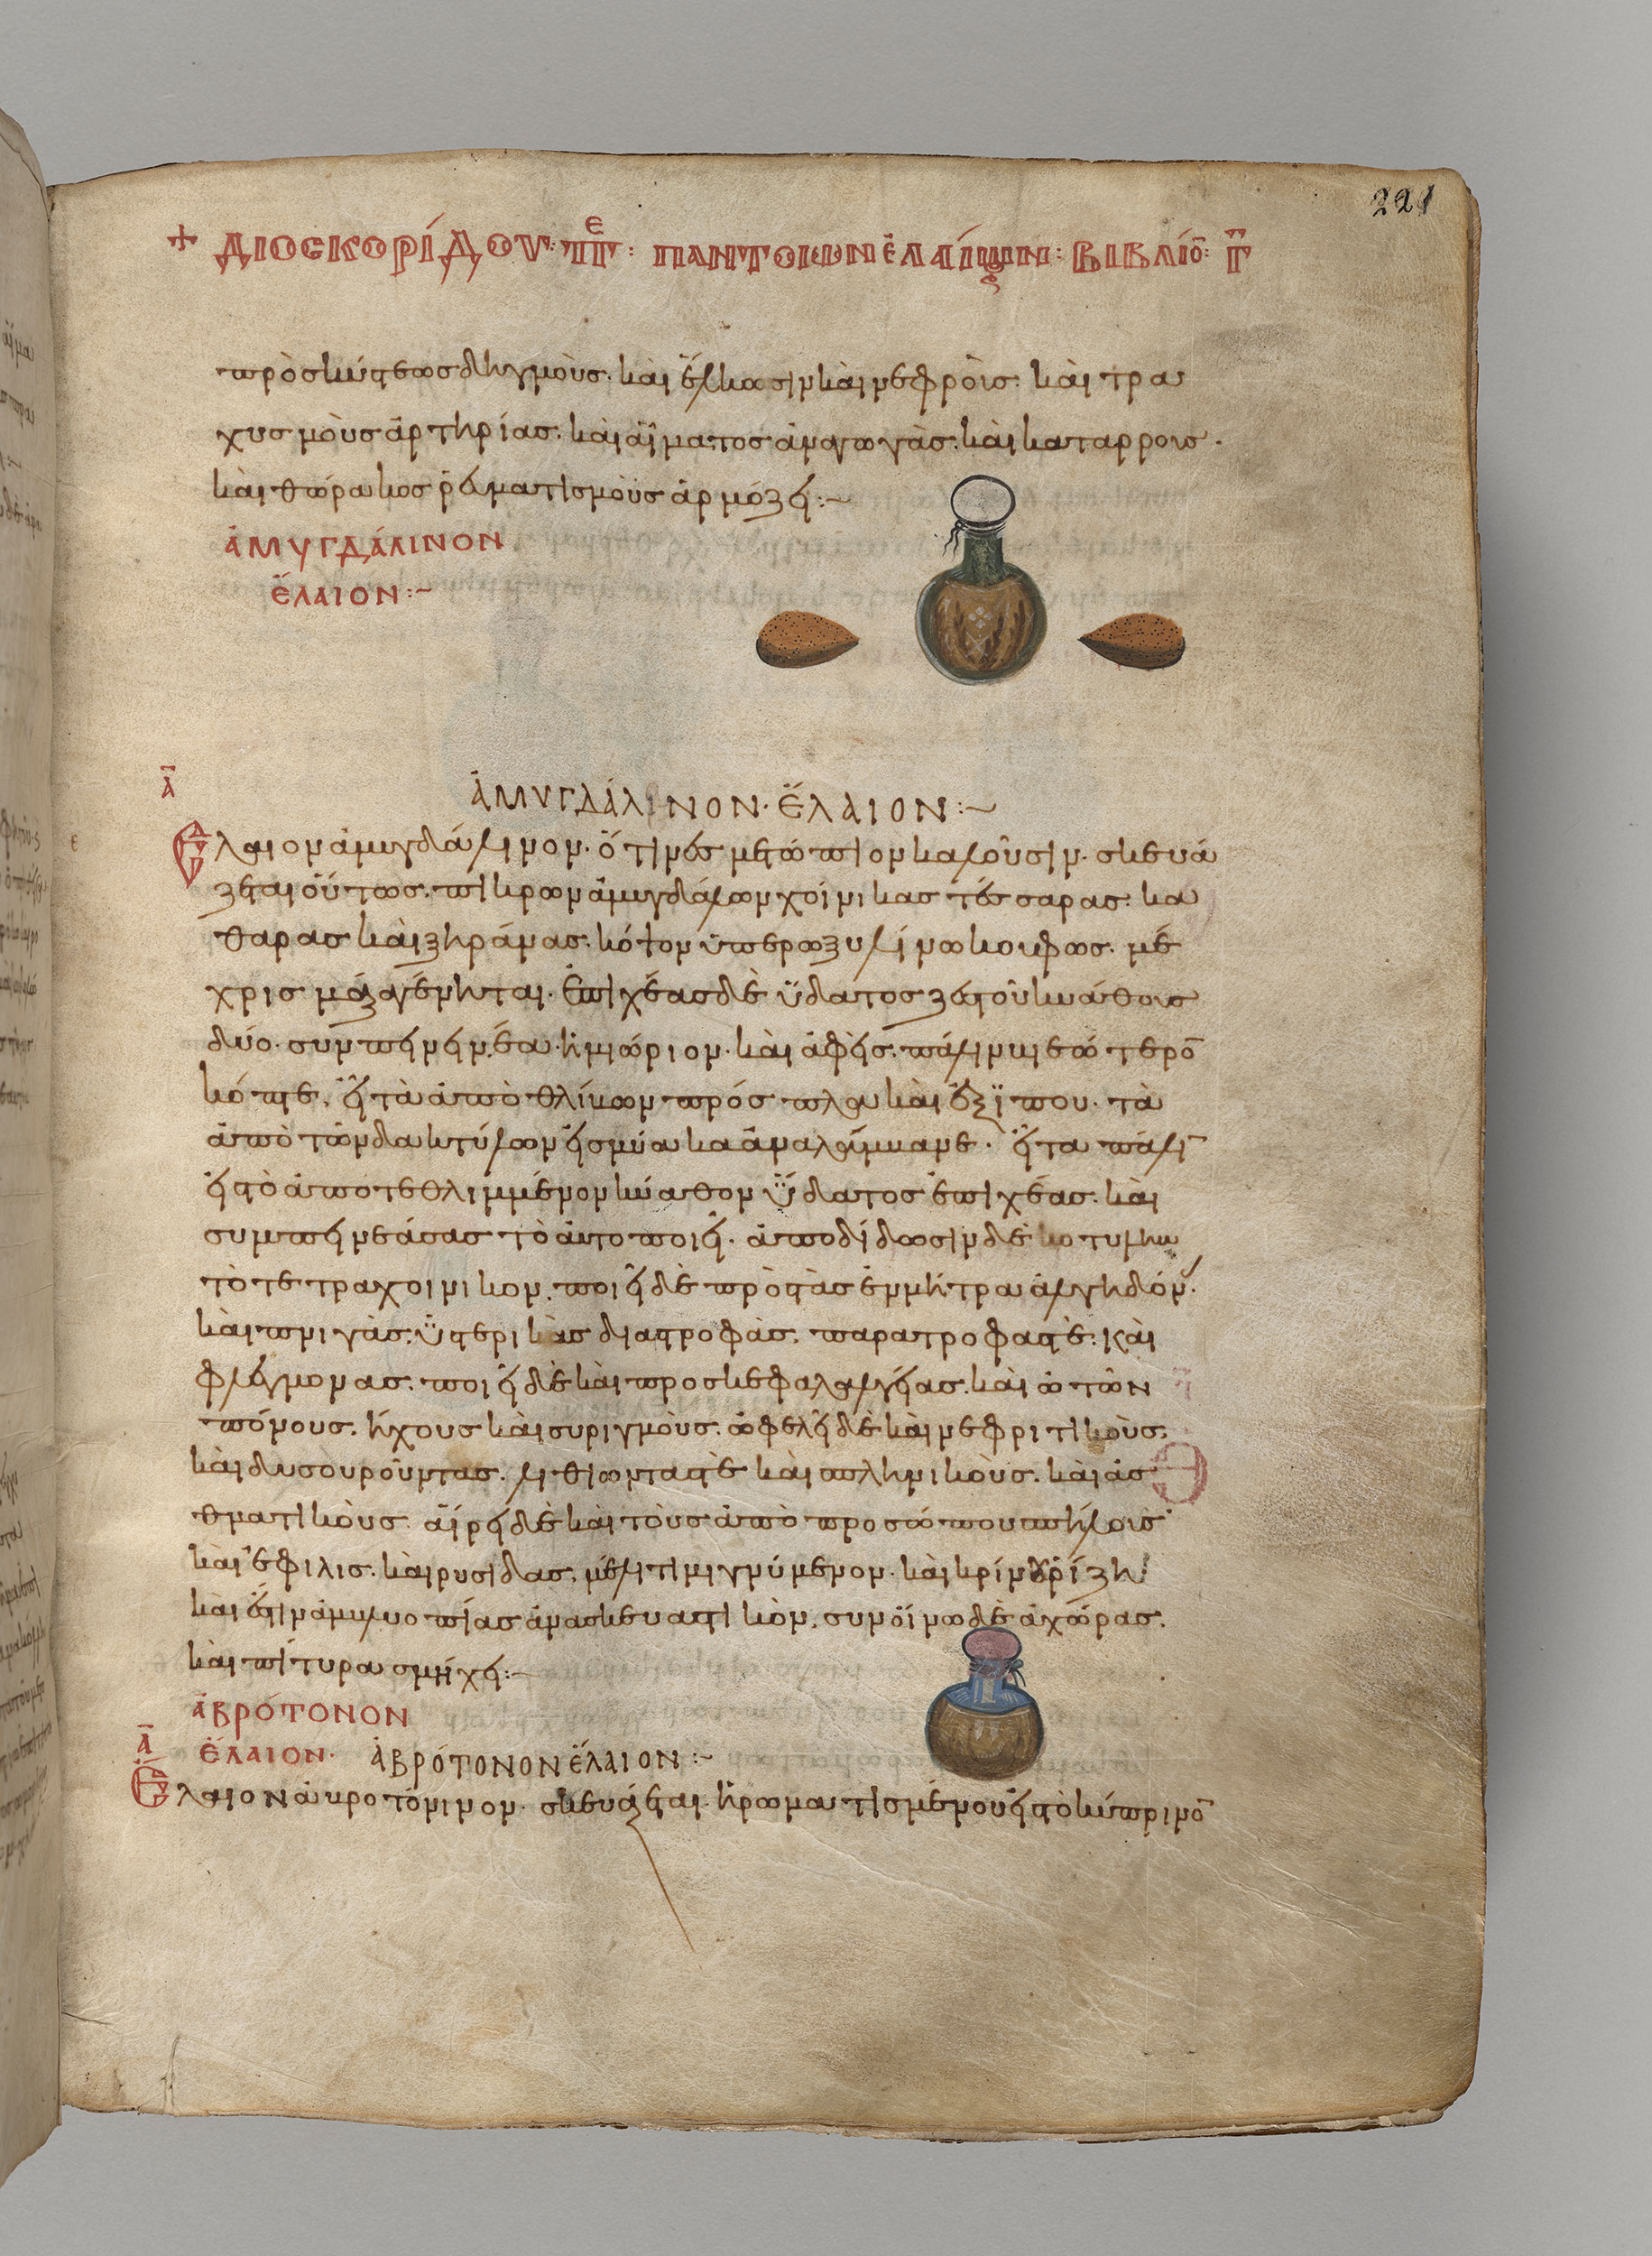 221
+ ΔΙΟСΚΟΡΊΔΟΥ: ΠΕΓ: ΠΑΝΤΟΙΩΝ ἘΛΑΊΩΝ: ΒΙΒΛΊΟ: Γ
πρὸσ κύστεωσ δηγμοὺσ· καὶ ἕλκωσιν καὶ νεφροῖσ· καὶ τρα
χυσμοὺσ ἀρτηρίασ· καὶ αἵματοσ ἀναγωγὰσ· καὶ καταρρουσ·
καὶ θώρακοσ ῥευματισμοὺσ ἁρμόζει:~
ἈΜΥΓΔΆΛΙΝΟΝ
ἜΛΑΙΟΝ:~
Α
ἈΜΥΓΔΆΛΙΝΟΝ· ἜΛΑΙΟΝ:~
Ελαιον ἀμυγδάλινον· ὅ τινέσ μετώπιον καλοῦσιν· σκευά
ζεται οὕτωσ· πικρων ἀμυγδάλων χοίνικασ τέσσαρασ· κα
θαρασ καὶ ξηράνασ· κόψον ὑπερω ξυλίνω κουφωσ· μέ
χρισ μάζα γένηται· ἐπιχέασ δὲ ὕδατοσ ζετοῦ κυάθουσ
δύο· συμπηνην έα· ἡμιώριον· καὶ ἀφεὶσ· πάλιν κιεώτερο
κόπτε· εἶτα ἀπὸ θλίβων πρόσ πλω καὶ ἐξίπου· τὰ
ἀπὸ τῶν δακτύλων εἰσ μύακα ἀναλάμβανε· εἶτα πάλι
εἰσ τὸ ἀποτεθλιμμένον κύαθον ὕδατοσ ἐπιχέασ· καὶ
συμπηνεάσασ τὸ ἀυτο ποιεῖ· ἀποδίδωσιν δὲ κοτυλην
τὸ τετραχοινικον· ποιεῖ δὲ πρὸσ τὰσ ἐν μήτρα ἀλγηδόν
καὶ πνιγὰσ· ὑστερικὰσ διαστροφὰσ· παραστροφασ τὲ· καὶ
φλέγμονασ· ποιεῖ δὲ καὶ προσ κεφαλαλγείασ· καὶ ὠτῶν
πόνουσ· ἤχουσ καὶ συριγμοὺσ· ὠφελεῖ δὲ καὶ νεφριτικοὺσ·
καὶ δυσουροῦντασ· λιθιωντασ τὲ καὶ σπληνικοὺσ· καὶ ἀσ
θματικοὺσ· αἴρει δὲ καὶ τοὺσ ἀπὸ προσώπου σπήλουσ
καὶ ἐφιλισ· καὶ ρυσίδασ· μέλιτι μιγνύμενον· καὶ κρίνου ρίζη
καὶ ἔστιν ἀμυλυοπίασ ἀνασκευαστικὸν· συν οἴνω δὲ ἀχώρασ·
καὶ πίτυρα σμήχει:~
ἈΒΡΌΤΟΝΟΝ
Α
ἜΛΑΙΟΝ· ἈΒΡΌΤΟΝΟΝ ἜΛΑΙΟΝ:~
Ελαιον ἁβροτόνινον· σκευάζεται· ἠρωματισμένου εἰσ τὸ κύπρινο